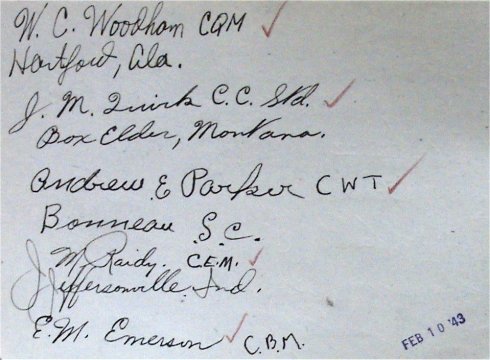 W. C. Woodham CQM
Hartford, Ala.
J. M. Quirk C.C. Std.
Box Elder, Montana.
Andrew E Parker CWT
Bonneau S.C.
J. M. Raidy. C.E.M.
Jeffersonville Ind.
E.M. Emerson C.B.M.
FEB 10 '43